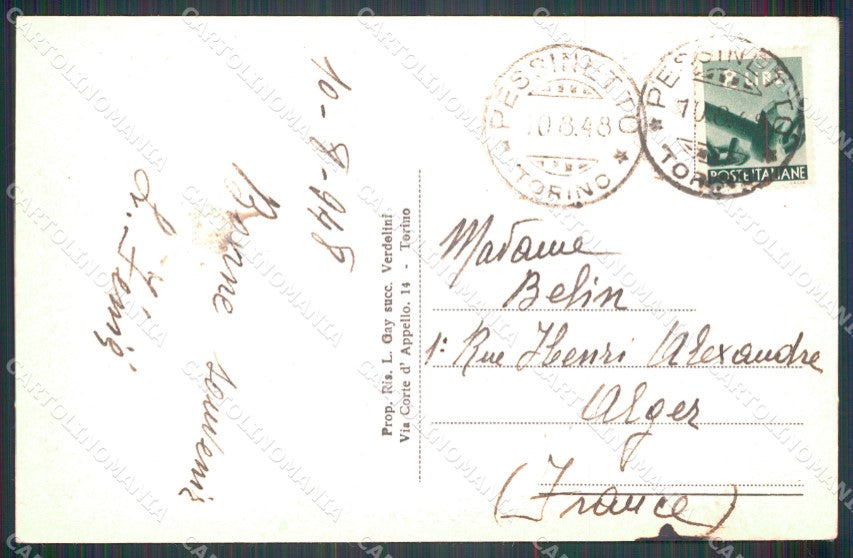 10-8-948
Bonne souvenir
Prop. Ris. L. Gay succ. Verdolini
Via Corte d'Appello, 14 - Torino
PESSINETTO
10.8.48
TORINO
PESSINETTO
10.8.48
TORINO
2 LIRE
POSTE ITALIANE
Madame
Belin
1: Rue Henri Alexandre
Alger
(France)
CARTOLINOMANIA